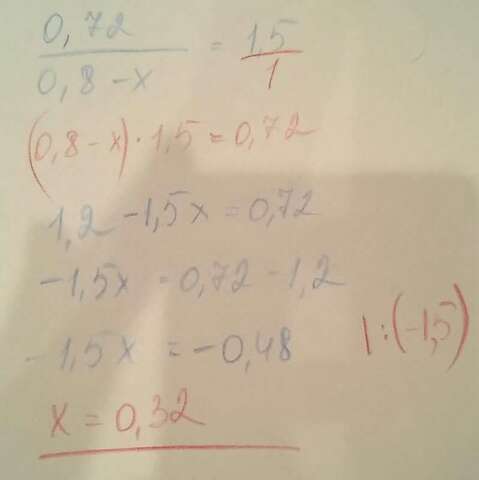 0,72 / 0,8 - x = 1,5 / 1
(0,8 - x) · 1,5 = 0,72
1,2 - 1,5x = 0,72
-1,5x = 0,72 - 1,2
-1,5x = -0,48 |:(-1,5)
x = 0,32